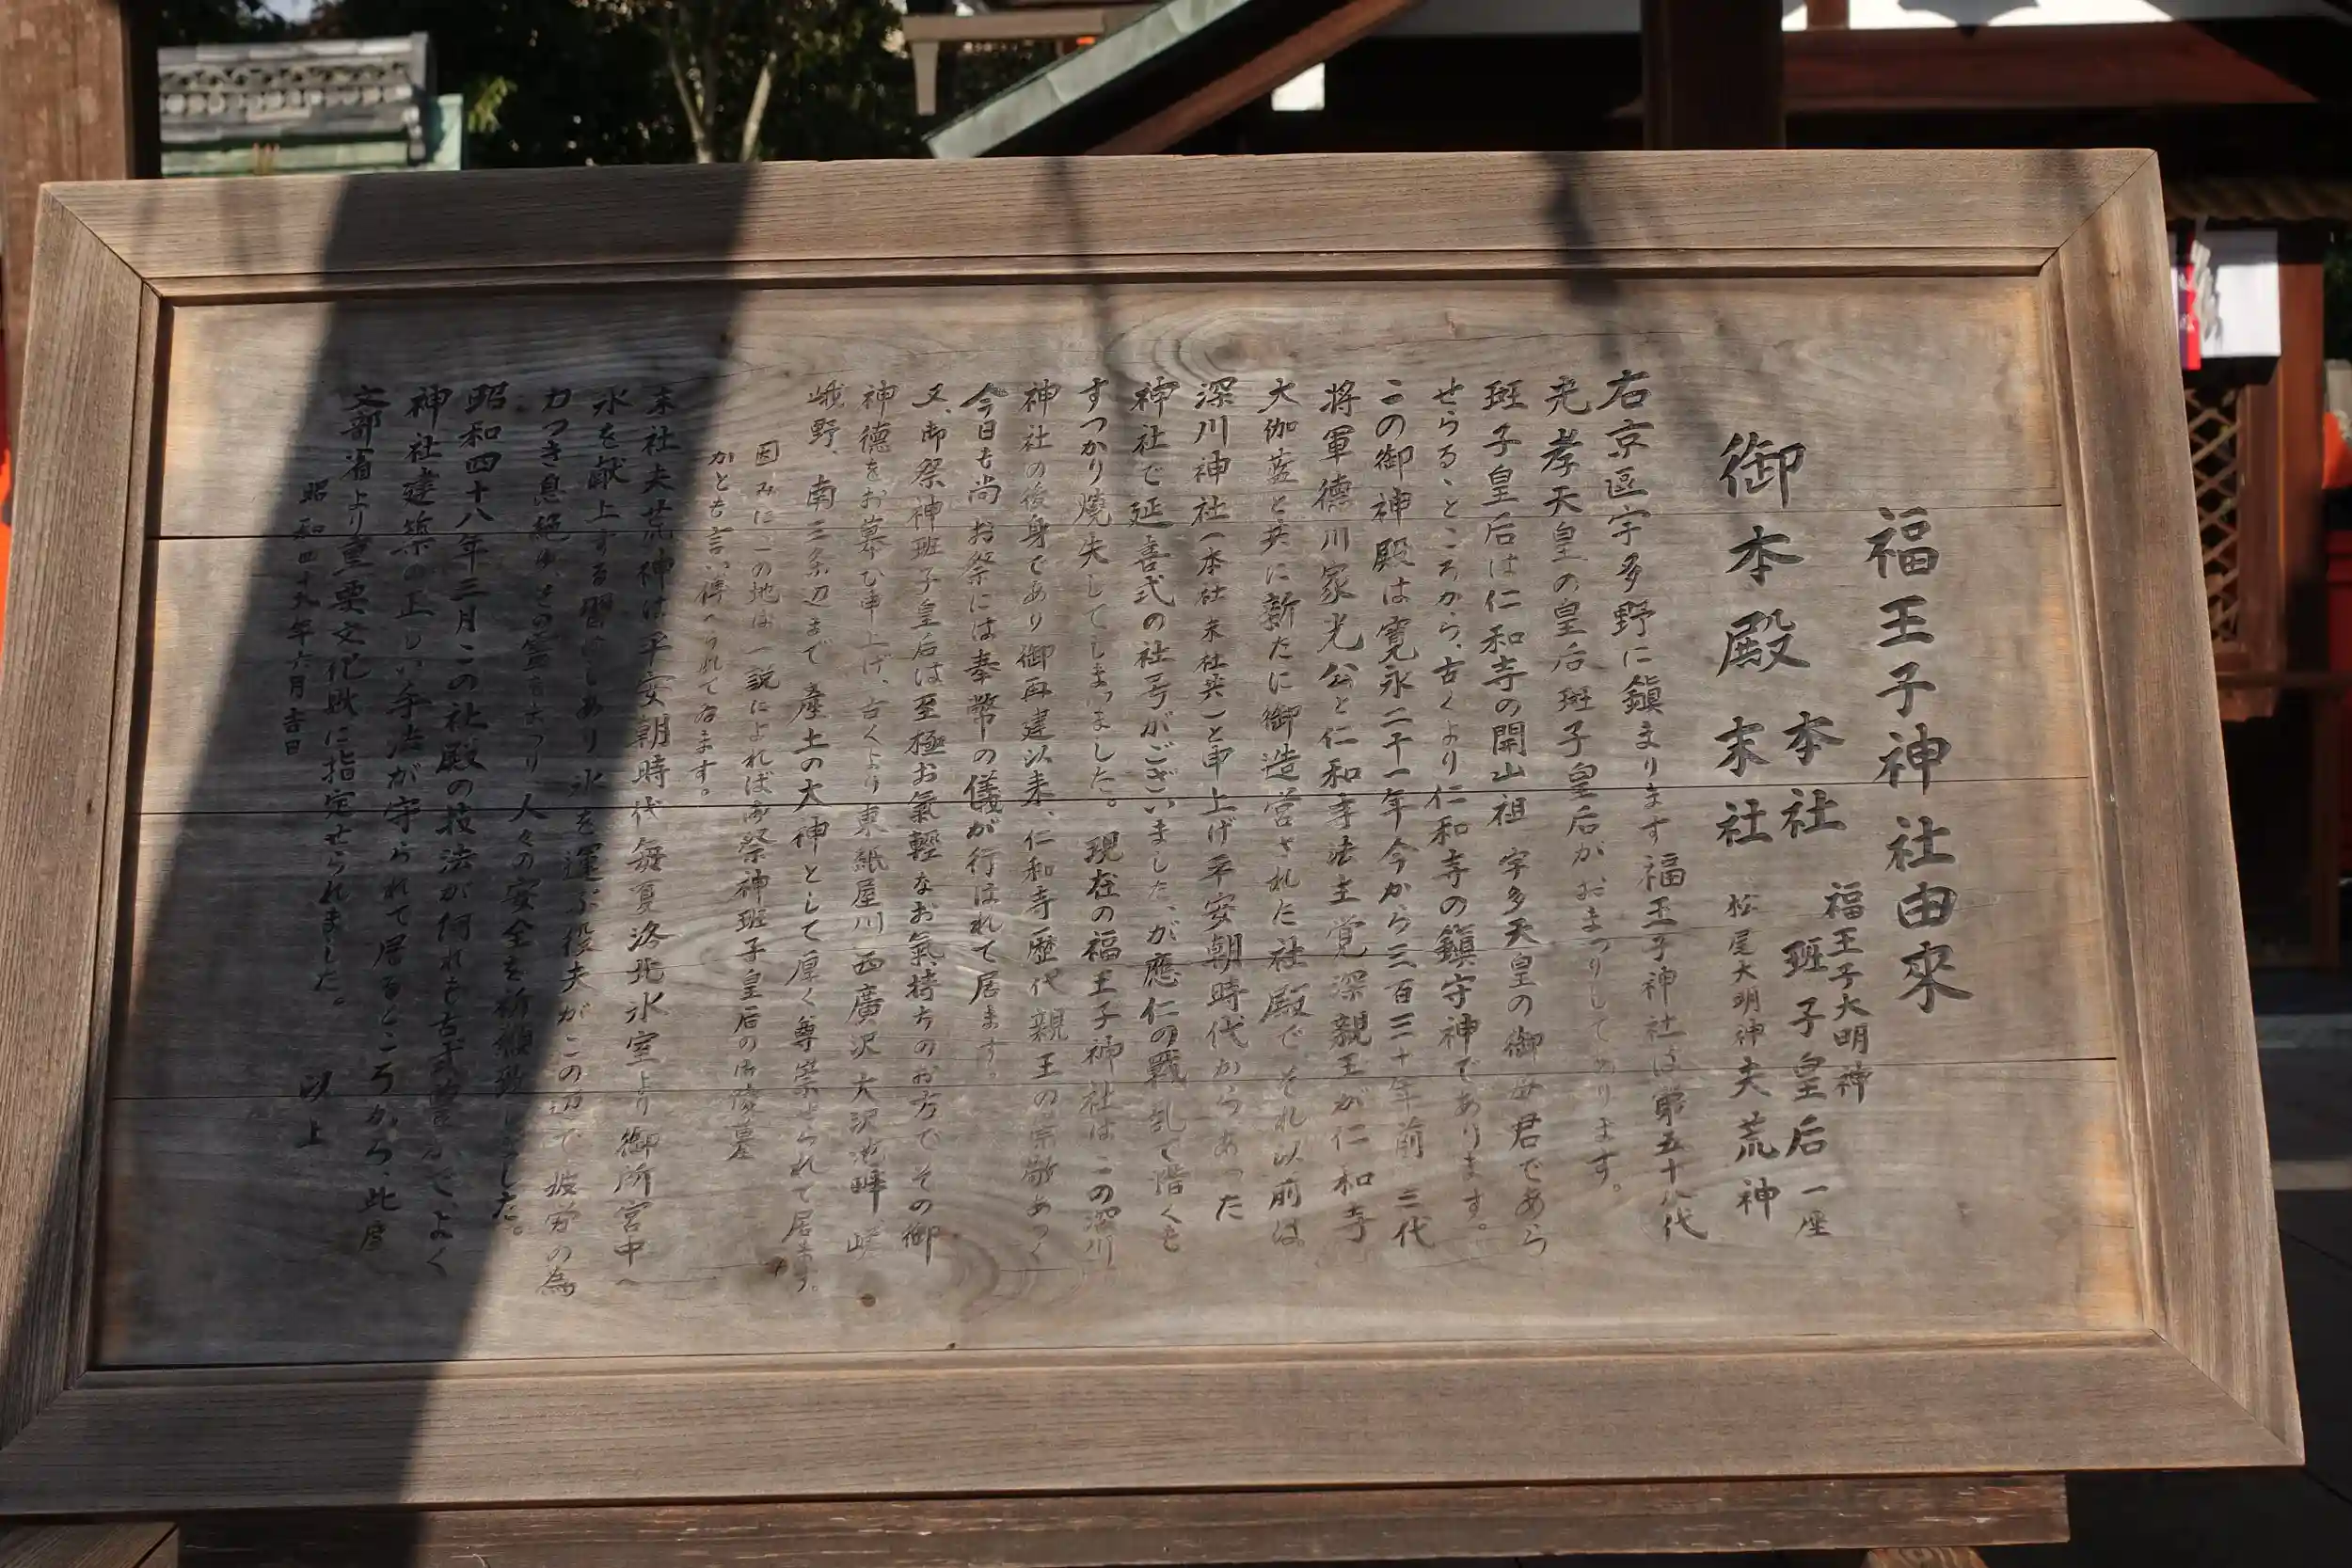 福王子神社由來
御本殿
本社
福王子大明神
班子皇后一座
末社
松尾大明神
夫荒神
右京區宇多野に鎭まります福王子神社は第五十八代
光孝天皇の皇后班子皇后がおまつりしてあります。
班子皇后は仁和寺の開山祖 宇多天皇の御母君であら
せらるゝところから、古くより仁和寺の鎭守神であります。
この御神殿は寛永二十一年今から三百三十年前 三代
将軍德川家光公と仁和寺法主覚深親王が仁和寺
大伽藍と共に新たに御造営された社殿でそれ以前は。
深川神社(本社末社共)と申上げ平安朝時代からあった
神社で延喜式の社号がございました、が應仁の戰乱で階くも
すつかり燒失してしまいました。現在の福王子神社はこの深川
神社の後身であり御再建以来、仁和寺歴代親王の崇敬あつく
今日も尚お祭には奉幣の儀が行はれて居ます。
又、御祭神班子皇后は至極お氣輕なお氣持ちのお方でその御
神德をお慕ひ申上げ、古くより東紙屋川 西廣沢大沢池畔 嵯
峨野、南三条辺まで産土の大神として厚く尊崇せられて居ます。
因みにこの地は一説によれば御祭神班子皇后の御陵墓
かとも言い傳へられてゐます。
末社夫荒神は平安朝時代每夏洛北氷室より御所宮中へ
氷を献上する習はしあり氷を運ぶ役夫がこの辺で疲労の為
力つき息絶ゆ、その霊をまつり人々の安全を祈願致しました。
昭和四十八年三月この社殿の技法が何れも古式豊かで、よく
神社建築の正しい手法が守られて居るところから、此度
文部省より重要文化財に指定せられました。
昭和四十九年六月吉日
以上